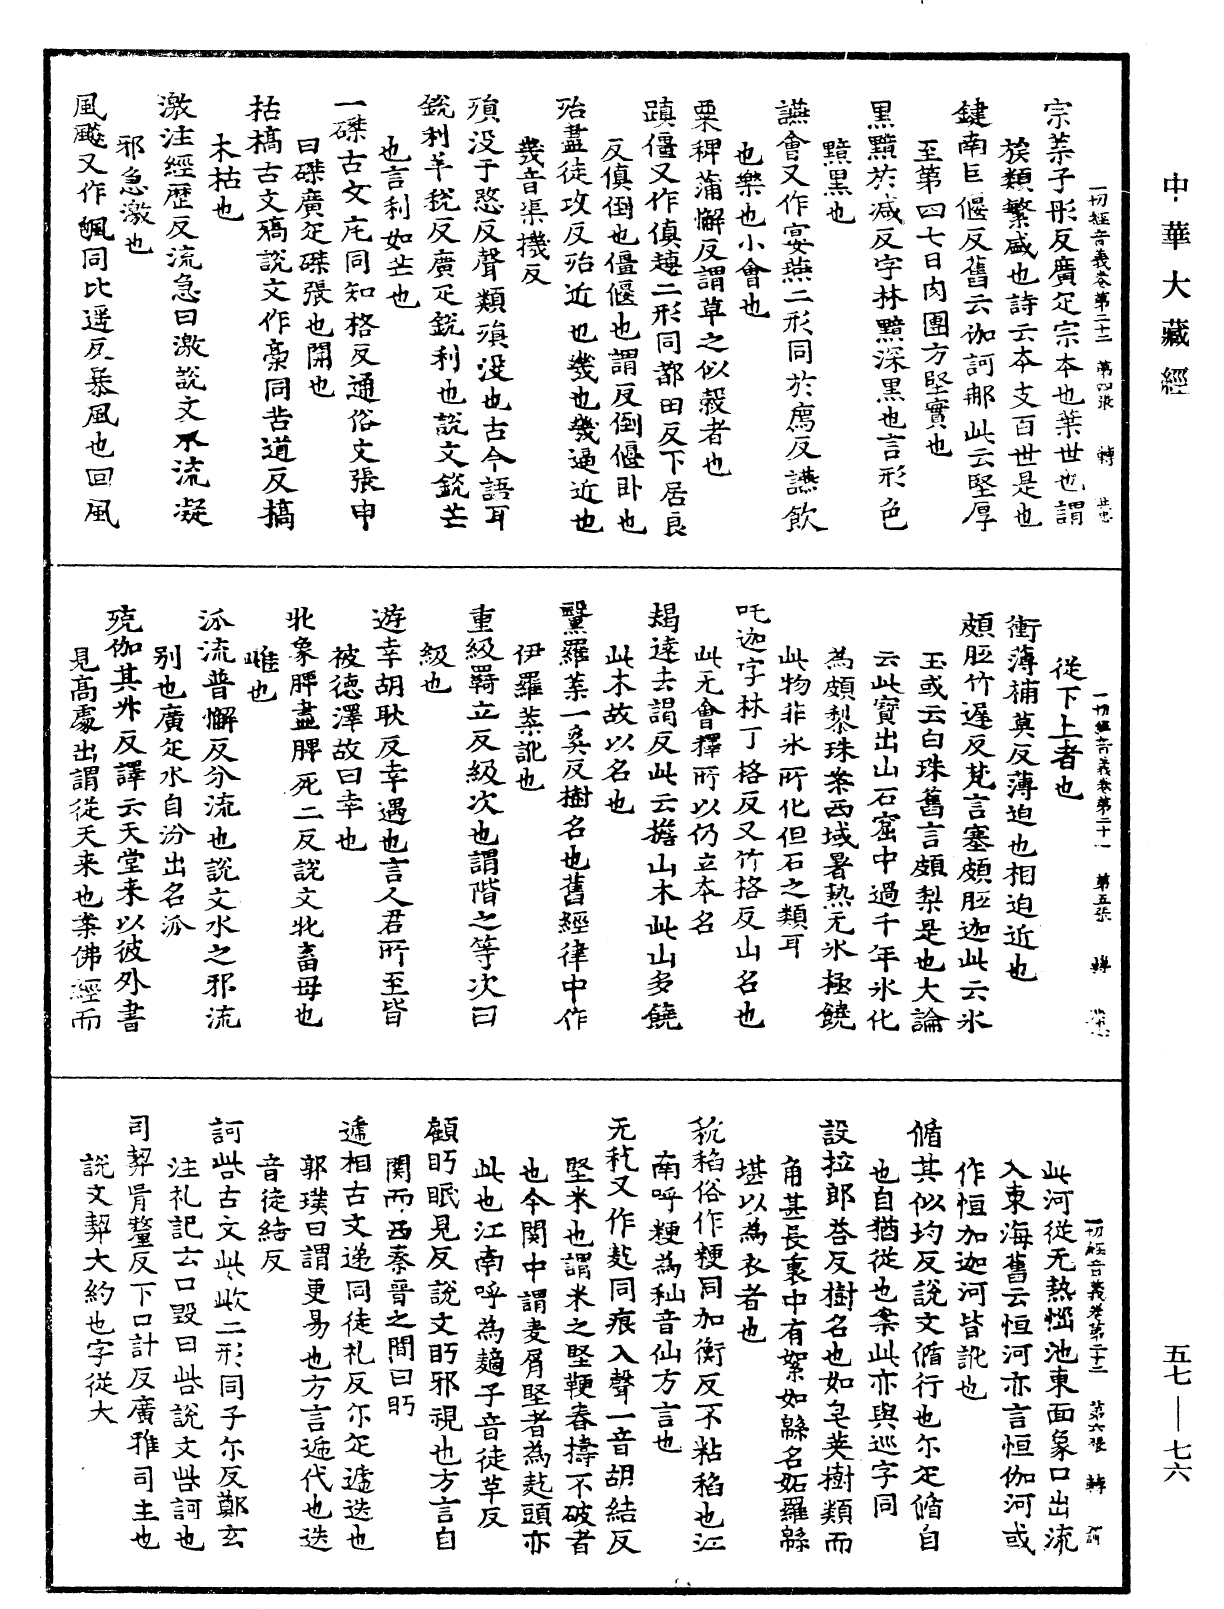 中華大藏經
一切經音義卷第二十三 第四張 轉
宗葉子彤反廣疋宗本也葉世也謂
族類繁盛也詩云本支百世是也
鍵南巨偃反舊云伽訶那此云堅厚
至第四七日肉團方堅實也
黑黶於減反字林黶深黑也言形色
黶黑也
讌會又作宴燕二形同於薦反讌飲
也樂也小會也
粟稗蒲懈反謂草之似穀者也
蹎僵又作傎趍二形同都田反下居良
反傎倒也僵偃也謂反倒偃卧也
殆盡徒攻反殆近也幾也幾逼近也
幾音渠機反
殞没于愍反聲類殞没也古今語耳
銳利羊稅反廣疋銳利也說文銳芒
也言利如芒也
一磔古文厇同知格反通俗文張申
曰磔廣疋磔張也開也
枯槁古文㱙說文作槀同苦道反槁
木枯也
激注經歷反流急曰激說文水流凝
邪急激也
風飈又作颻同比遥反暴風也回風
一切經音義卷第二十三 第五張 轉
從下上者也
衝薄補莫反薄迫也相迫近也
頗胝竹遲反梵言塞頗胝迦此云水
玉或云白珠舊言頗梨是也大論
云此寶出山石窟中過千年氷化
為頗黎珠案西域暑熱无氷極饒
此物非氷所化但石之類耳
吒迦字林丁格反又竹格反山名也
此无會釋所以仍立本名
朅達去謁反此云擔山木此山多饒
此木故以名也
黳羅葉一奚反樹名也舊經律中作
伊羅葉訛也
重級羇立反級次也謂階之等次曰
級也
遊幸胡耿反幸遇也言人君所至皆
被德澤故曰幸也
牝象脾盡脾死二反說文牝畜母也
雌也
派流普懈反分流也說文水之邪流
別也廣疋水自汾出名派
殑伽其升反譯云天堂來以彼外書
見高處出謂從天来也案佛經而
一切經音義卷第二十三 第六張 轉
此河從无熱惱池東面象口出流
入東海舊云恒河亦言恒伽河或
作恒加迦河皆訛也
循其似均反說文循行也尒疋循自
也自猶從也案此亦與巡字同
設拉郎荅反樹名也如皂莢樹類而
角甚長裏中有絮如緜名妬羅緜
堪以為衣者也
秔稻俗作粳同加衡反不粘稻也江
南呼粳為秈音仙方言也
无䴬又作麧同痕入聲一音胡結反
堅米也謂米之堅鞕舂擣不破者
也今関中謂麦屑堅者為麧頭亦
此也江南呼為䴾子音徒草反
顧眄眠見反說文眄邪視也方言自
関而西秦晉之間曰眄
遞相古文递同徒礼反尒疋遞迭也
郭璞曰謂更易也方言遞代也迭
音徒結反
訶呰古文呰、欪二形同子尒反鄭玄
注礼記云口毀曰呰說文呰訶也
司契胥𨤲反下口計反廣雅司主也
說文契大約也字從大
五七—七六